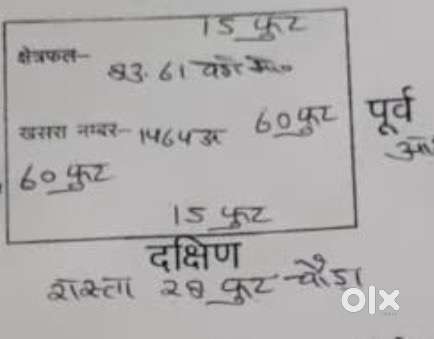 15 फुट
क्षेत्रफल-
83.61 वर्ग मी०
खसरा नम्बर- 1464अ
60 फुट
पूर्व
60 फुट
15 फुट
दक्षिण
रास्ता 28 फुट चौडा
olx